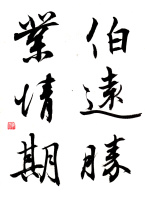 伯遠勝
業情期